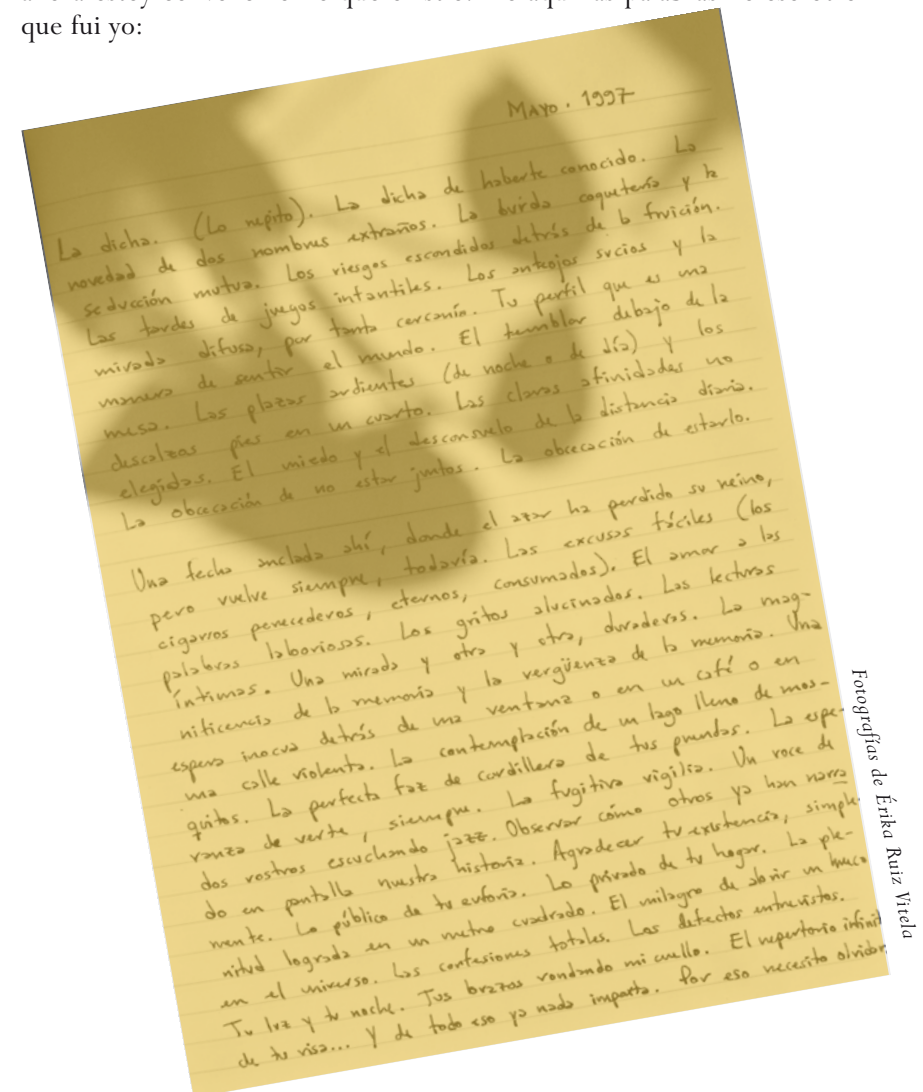 que fui yo:
MAYO. 1997
La dicha. (Lo nepito). La dicha de haberte conocido. La
novedad de dos nombres extraños. La burda coquetería y la
seducción mutua. Los riesgos escondidos detrás de la fruición.
Las tardes de juegos infantiles. Los anteojos sucios y la
mirada difusa, por tanta cercanía. Tu perfil que es una
manera de sentir el mundo. El temblor debajo de la
mesa. Las plazas ardientes (de noche o de día) y los
descalzos pies en un cuarto. Las claras afinidades no
elegidas. El miedo y el desconsuelo de la distancia diaria.
La obcecación de no estar juntos. La obcecación de estarlo.
Una fecha anclada ahí, donde el azar ha perdido su reino,
pero vuelve siempre, todavía. Las excusas fáciles (los
cigarros perecederos, eternos, consumados). El amor a las
palabras laboriosas. Los gritos alucinados. Las lecturas
íntimas. Una mirada y otra y otra, duraderas. La mag-
nificencia de la memoria y la vergüenza de la memoria. Una
espera inocua detrás de una ventana o en un café o en
una calle violenta. La contemplación de un lago lleno de mos-
quitos. La perfecta faz de cordillera de tus prendas. La espe-
ranza de verte, siempre. La fugitiva vigilia. Un roce de
dos rostros escuchando jazz. Observar cómo otros ya han narra
do en pantalla nuestra historia. Agradecer tu existencia, simple-
mente. Lo público de tu euforia. Lo privado de tu hogar. La ple-
nitud lograda en un metro cuadrado. El milagro de abrir un hueco
en el universo. Las confesiones totales. Los defectos entrevistos.
Tu luz y tu noche. Tus brazos rondando mi cuello. El repertorio infinit
de tu risa... Y de todo eso ya nada importa. Por eso necesito olvidar
Fotografías de Érika Ruiz Vitela